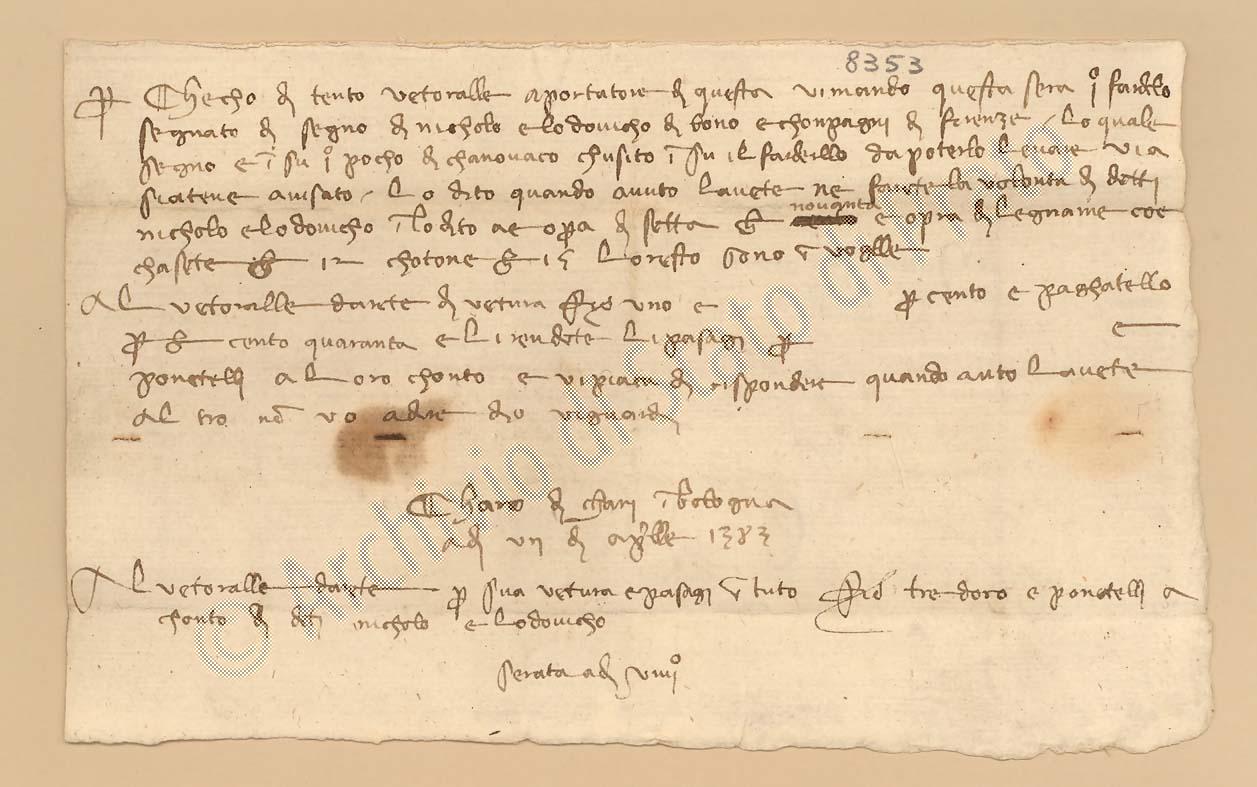 8353
P Checho di tento vetoralle aportatore di questa vi mando questa sera i° fardelo
segnato di segno di nicholo e lodovicho di bono e chonpagni di firenze / lo quale
segno e i su i° pocho di chanovaco chusito i su il fardello da poterlo levare via
siatene avisato / lo dito quando avuto lavete ne farete la volonta di detti
novanta
nicholo e lodovicho i lo dito ae opra di setta lb e opra di legname coe
chasete lb 12 chotone lb lo resto sono
Al vetoralle darete di vetura fio uno e p cento e paghatello
p lb cento quaranta e li rendete li pasagi p e
ponetelli a loro chonto e vi piaca di rispondere quando auto lavete
altro no vo a dire dio vi guardi
Charo di chari i bologna
adi vii di aprille 1383
Al vetoralle darete p sua vetura e pasagi tuto fio tre doro e ponetelli a
chonto di deti nicholo e lodovicho
serata adi viiii°
© Archivio di Stato di Prato